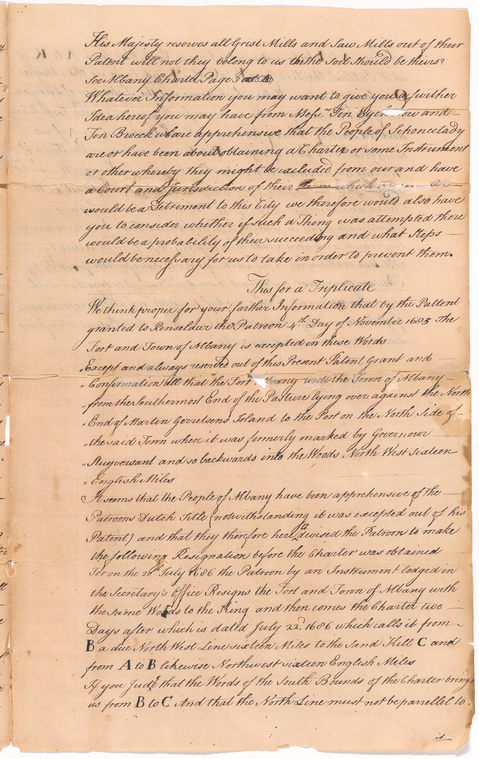 His Majesty reserves all Grist Mills and Saw Mills out of their
Patent will not they belong to us as the Soil should be theirs?
See Albany Chartd Page 3
Whatever Information you may want to give you a further
Idea hereof you may have from Messrs Ten Eyck and
Ten Broeck we are apprehensive that the People of Schonectady
are or have been about obtaining a Charter or some Instrument
or other whereby they might be excluded from our and have
a Court and Jurisdiction of their
would be a Detriment to this City we therefore would also have
you to consider whether if such a Thing was attempted there
would be a probability of their succeeding and what Steps
would be necessary for us to take in order to prevent them.
This for a Triplicate
We think proper for your farther Information that by the Pattent
granted to Renselaer the Patroon 4th Day of November 1685 The
Fort and Town of Albany is accepted in these Words
Except and always reserved out of this Present Patent Grant and
Confirmation all that the Fort Albany with the Town of Albany
from the Southermost End of the Pasture lying over against the North
End of Marten Gerritsens Island to the Post on the North Side of
the said Town where it was formerly marked by Governour
Stuyvesant and so backwards into the Woods North West Sixteen
English Miles
It seems that the People of Albany have been apprehensive of the
Patroons Dutch Title (notwithstanding it was excepted out of his
Patent) and that they therefore have advised the Patroon to make
the following Resignation before the Charter was obtained
For on the 20 July 1686 the Patroon by an Instrument lodged in
the Secretary's Office Resigns the Fort and Town of Albany with
the same Words to the King and then comes the Charter two
Days after which is dated July 22d 1686 which calls it from
B a due North West Line sixteen Miles to the Sand Hill C and
from A to B likewise Northwest sixteen English Miles
If you Judge that the Words of the South Bounds of the Charter brings
us from B to C And that the North Line must not be parrellel to
is